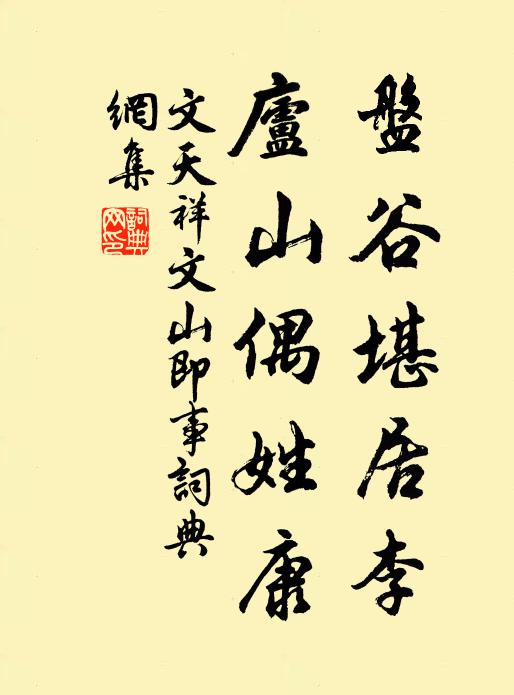 盤谷堪居李
廬山偶姓康
文天祥文山即事詞典
網集
詞典
网印